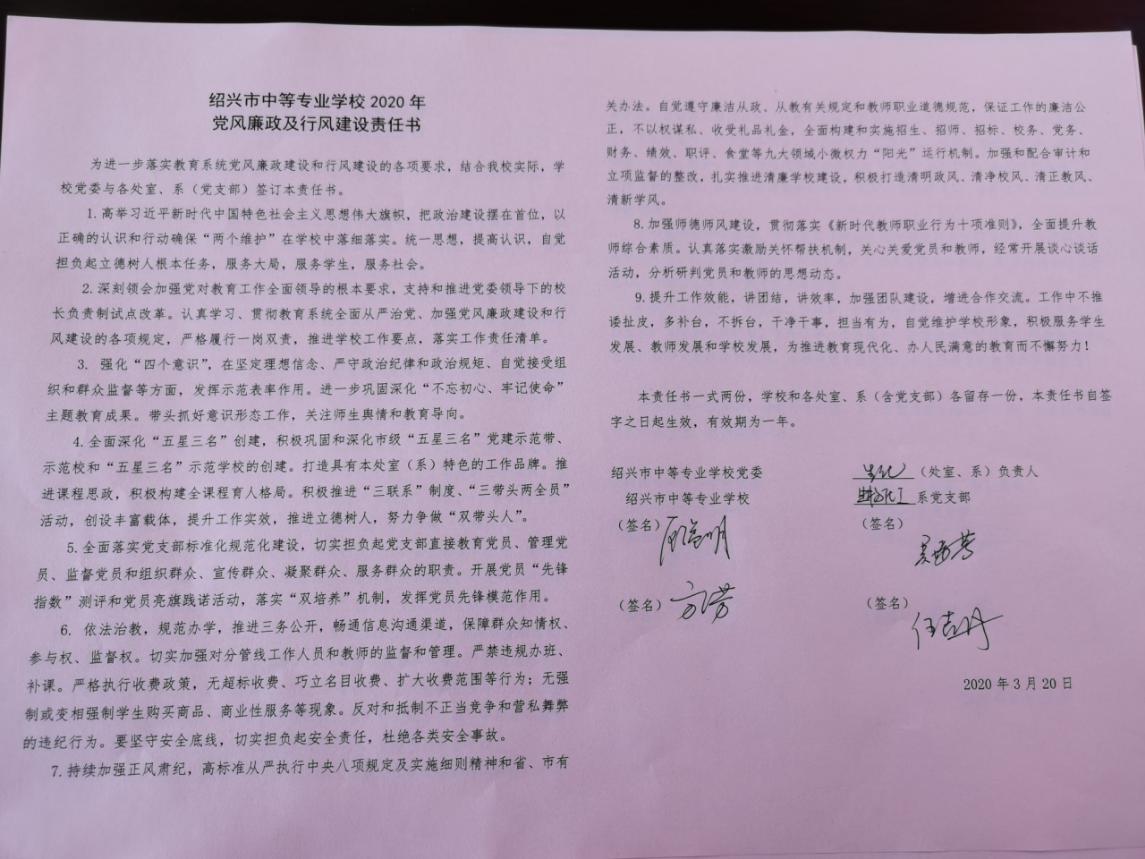 绍兴市中等专业学校 2020 年
党风廉政及行风建设责任书
为进一步落实教育系统党风廉政建设和行风建设的各项要求，结合我校实际，学
校党委与各处室、系（党支部）签订本责任书。
1.高举习近平新时代中国特色社会主义思想伟大旗帜，把政治建设摆在首位，以
正确的认识和行动确保“两个维护”在学校中落细落实。统一思想，提高认识，自觉
担负起立德树人根本任务，服务大局，服务学生，服务社会。
2.深刻领会加强党对教育工作全面领导的根本要求，支持和推进党委领导下的校
长负责制试点改革。认真学习、贯彻教育系统全面从严治党、加强党风廉政建设和行
风建设的各项规定，严格履行一岗双责，推进学校工作要点，落实工作责任清单。
3. 强化“四个意识”，在坚定理想信念、严守政治纪律和政治规矩、自觉接受组
织和群众监督等方面，发挥示范表率作用。进一步巩固深化“不忘初心、牢记使命”
主题教育成果。带头抓好意识形态工作，关注师生舆情和教育导向。
4.全面深化“五星三名”创建，积极巩固和深化市级“五星三名”党建示范带、
示范校和“五星三名”示范学校的创建。打造具有本处室（系）特色的工作品牌。推
进课程思政，积极构建全课程育人格局。积极推进“三联系”制度、“三带头两全员”
活动，创设丰富载体，提升工作实效，推进立德树人，努力争做“双带头人”。
5.全面落实党支部标准化规范化建设，切实担负起党支部直接教育党员、管理党
员、监督党员和组织群众、宣传群众、凝聚群众、服务群众的职责。开展党员“先锋
指数”测评和党员亮旗践诺活动，落实“双培养”机制，发挥党员先锋模范作用。
6. 依法治教，规范办学，推进三务公开，畅通信息沟通渠道，保障群众知情权、
参与权、监督权。切实加强对分管线工作人员和教师的监督和管理。严禁违规办班、
补课。严格执行收费政策，无超标收费、巧立名目收费、扩大收费范围等行为；无强
制或变相强制学生购买商品、商业性服务等现象。反对和抵制不正当竞争和营私舞弊
的违纪行为。要坚守安全底线，切实担负起安全责任，杜绝各类安全事故。
7.持续加强正风肃纪，高标准从严执行中央八项规定及实施细则精神和省、市有
关办法。自觉遵守廉洁从政、从教有关规定和教师职业道德规范，保证工作的廉洁公
正，不以权谋私、收受礼品礼金，全面构建和实施招生、招师、招标、校务、党务、
财务、绩效、职评、食堂等九大领域小微权力“阳光”运行机制。加强和配合审计和
立项监督的整改，扎实推进清廉学校建设，积极打造清明政风、清净校风、清正教风、
清新学风。
8.加强师德师风建设，贯彻落实《新时代教师职业行为十项准则》，全面提升教
师综合素质。认真落实激励关怀帮扶机制，关心关爱党员和教师，经常开展谈心谈话
活动，分析研判党员和教师的思想动态。
9.提升工作效能，讲团结，讲效率，加强团队建设，增进合作交流。工作中不推
诿扯皮，多补台，不拆台，干净干事，担当有为，自觉维护学校形象，积极服务学生
发展、教师发展和学校发展，为推进教育现代化、办人民满意的教育而不懈努力！
本责任书一式两份，学校和各处室、系（含党支部）各留存一份，本责任书自签
字之日起生效，有效期为一年。
绍兴市中等专业学校党委
（处室、系）负责人
绍兴市中等专业学校
系党支部
（签名）
（签名）
（签名）方芳
（签名）
2020 年 3 月 20 日